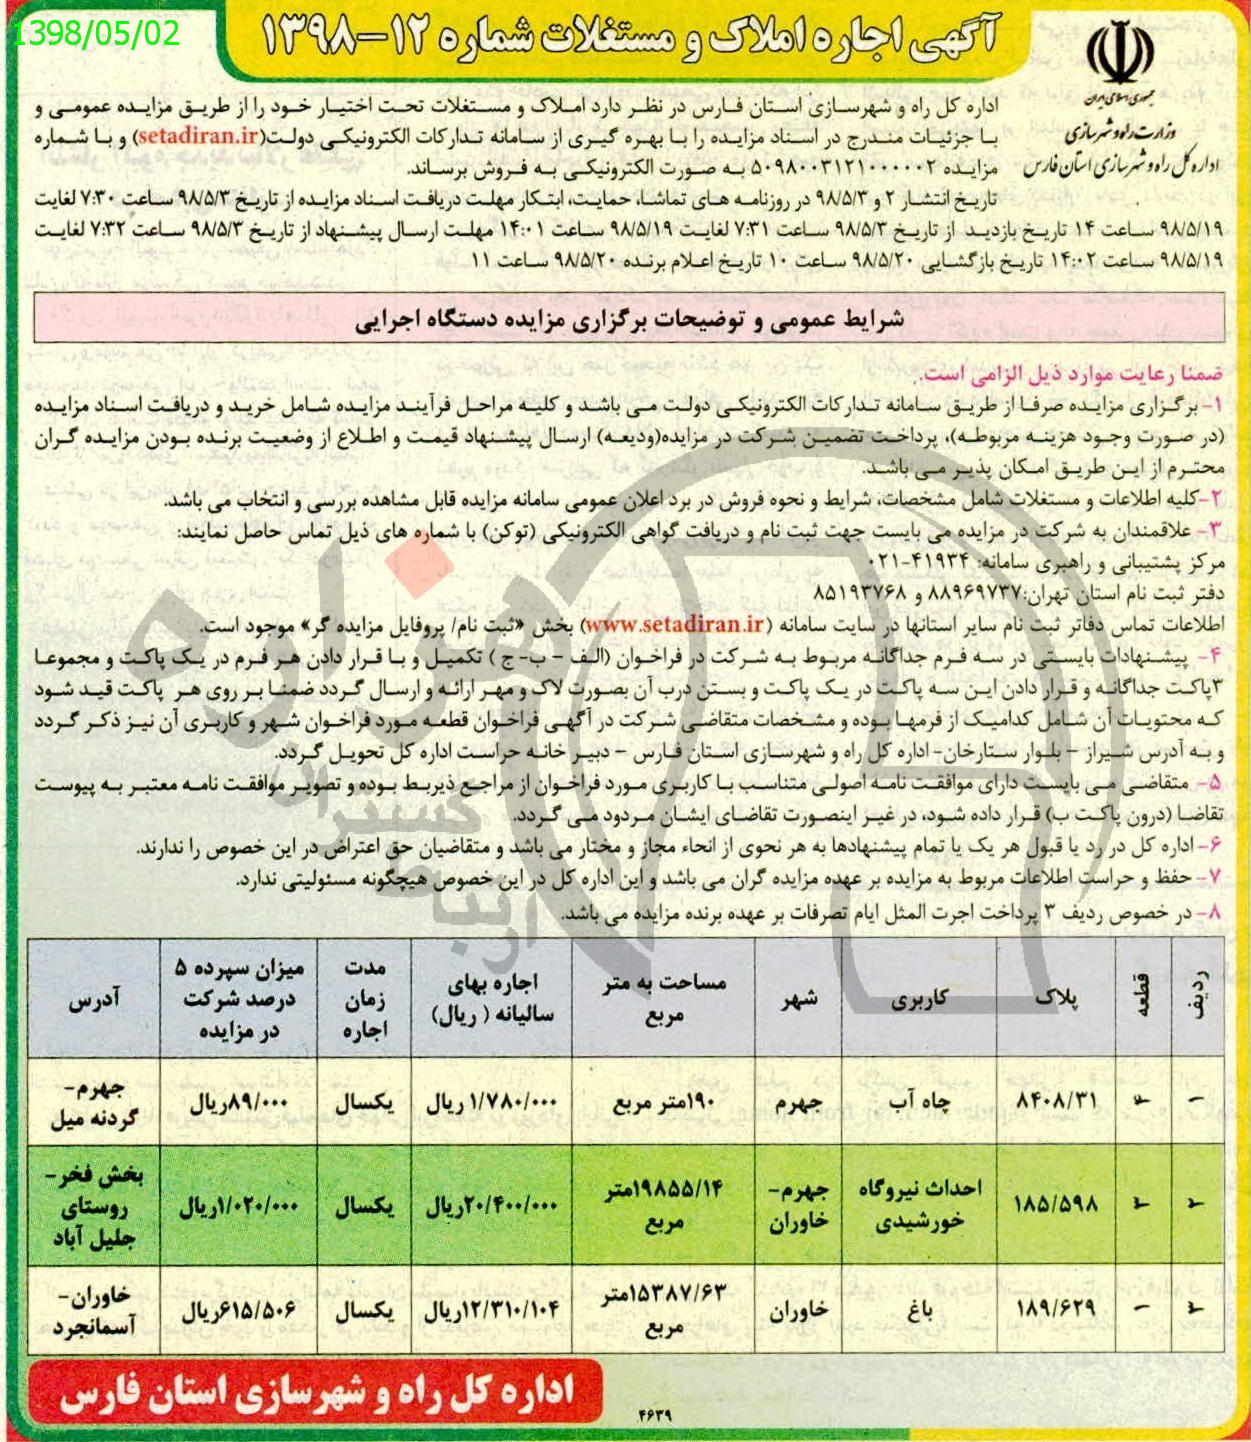 1398/05/02
آگهی اجاره املاک و مستغلات شماره ۱۲-۱۳۹۸
جمهوری اسلامی ایران
وزارت راه و شهرسازی
اداره کل راه و شهرسازی استان فارس
اداره کل راه و شهرسازی استان فارس در نظر دارد املاک و مستغلات تحت اختیار خود را از طریق مزایده عمومی و
با جزئیات مندرج در اسناد مزایده را با بهره گیری از سامانه تدارکات الکترونیکی دولت(setadiran.ir) و با شماره
مزایده ۵۰۹۸۰۰۳۱۲۱۰۰۰۰۰۲ به صورت الکترونیکی به فروش برساند.
تاریخ انتشار ۲ و ۹۸/۵/۳ در روزنامه های تماشا، حمایت، ابتکار مهلت دریافت اسناد مزایده از تاریخ ۹۸/۵/۳ ساعت ۷:۳۰ لغایت
۹۸/۵/۱۹ ساعت ۱۴ تاریخ بازدید از تاریخ ۹۸/۵/۳ ساعت ۷:۳۱ لغایت ۹۸/۵/۱۹ ساعت ۱۴:۰۱ مهلت ارسال پیشنهاد از تاریخ ۹۸/۵/۳ ساعت ۷:۳۲ لغایت
۹۸/۵/۱۹ ساعت ۱۴:۰۲ تاریخ بازگشایی ۹۸/۵/۲۰ ساعت ۱۰ تاریخ اعلام برنده ۹۸/۵/۲۰ ساعت ۱۱
شرایط عمومی و توضیحات برگزاری مزایده دستگاه اجرایی
ضمنا رعایت موارد ذیل الزامی است.
۱- برگزاری مزایده صرفا از طریق سامانه تدارکات الکترونیکی دولت می باشد و کلیه مراحل فرآیند مزایده شامل خرید و دریافت اسناد مزایده
(در صورت وجود هزینه مربوطه)، پرداخت تضمین شرکت در مزایده(ودیعه) ارسال پیشنهاد قیمت و اطلاع از وضعیت برنده بودن مزایده گران
محترم از این طریق امکان پذیر می باشد.
۲-کلیه اطلاعات و مستغلات شامل مشخصات، شرایط و نحوه فروش در برد اعلان عمومی سامانه مزایده قابل مشاهده بررسی و انتخاب می باشد.
۳- علاقمندان به شرکت در مزایده می بایست جهت ثبت نام و دریافت گواهی الکترونیکی (توکن) با شماره های ذیل تماس حاصل نمایند:
مرکز پشتیبانی و راهبری سامانه: ۴۱۹۳۴-۰۲۱
دفتر ثبت نام استان تهران:۸۸۹۶۹۷۳۷ و ۸۵۱۹۳۷۶۸
اطلاعات تماس دفاتر ثبت نام سایر استانها در سایت سامانه (www.setadiran.ir) بخش «ثبت نام/ پروفایل مزایده گر» موجود است.
۴- پیشنهادات بایستی در سه فرم جداگانه مربوط به شرکت در فراخوان (الف - ب- ج ) تکمیل و با قرار دادن هر فرم در یک پاکت و مجموعا
۳پاکت جداگانه و قرار دادن این سه پاکت در یک پاکت و بستن درب آن بصورت لاک و مهر ارائه و ارسال گردد ضمنا بر روی هر پاکت قید شود
که محتویات آن شامل کدامیک از فرمها بوده و مشخصات متقاضی شرکت در آگهی فراخوان قطعه مورد فراخوان شهر و کاربری آن نیز ذکر گردد
و به آدرس شیراز - بلوار ستارخان- اداره کل راه و شهرسازی استان فارس - دبیر خانه حراست اداره کل تحویل گردد.
۵- متقاضی می بایست دارای موافقت نامه اصولی متناسب با کاربری مورد فراخوان از مراجع ذیربط بوده و تصویر موافقت نامه معتبر به پیوست
تقاضا (درون پاکت ب) قرار داده شود، در غیر اینصورت تقاضای ایشان مردود می گردد.
۶- اداره کل در رد یا قبول هر یک یا تمام پیشنهادها به هر نحوی از انحاء مجاز و مختار می باشد و متقاضیان حق اعتراض در این خصوص را ندارند.
۷- حفظ و حراست اطلاعات مربوط به مزایده بر عهده مزایده گران می باشد و این اداره کل در این خصوص هیچگونه مسئولیتی ندارد.
۸- در خصوص ردیف ۳ پرداخت اجرت المثل ایام تصرفات بر عهده برنده مزایده می باشد.
ردیف | قطعه | پلاک | کاربری | شهر | مساحت به متر مربع | اجاره بهای سالیانه ( ریال) | مدت زمان اجاره | میزان سپرده ۵ درصد شرکت در مزایده | آدرس
۱ | ۴ | ۸۴۰۸/۳۱ | چاه آب | جهرم | ۱۹۰متر مربع | ۱/۷۸۰/۰۰۰ ریال | یکسال | ۸۹/۰۰۰ریال | جهرم- گردنه میل
۲ | ۲ | ۱۸۵/۵۹۸ | احداث نیروگاه خورشیدی | جهرم- خاوران | ۱۹۸۵۵/۱۴متر مربع | ۲۰/۴۰۰/۰۰۰ریال | یکسال | ۱/۰۲۰/۰۰۰ریال | بخش فخر- روستای جلیل آباد
۳ | ۱ | ۱۸۹/۶۲۹ | باغ | خاوران | ۱۵۳۸۷/۶۳متر مربع | ۱۲/۳۱۰/۱۰۴ریال | یکسال | ۶۱۵/۵۰۶ریال | خاوران- آسمانجرد
اداره کل راه و شهرسازی استان فارس
۴۶۳۹